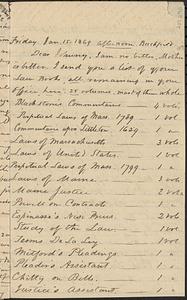 Friday, Jan. 15. 1869 afternoon, Bucksport
Dear Nanny, I am no better, Mother
is better. I send you a list of your
Law Books all remaining in your
office here: 25 volumes, most of them whole
Blackstone's Commentaries 4 vols
Perpetual Laws of Mass. 1789 1 vol
Commentaries upon Littleton 1629 1 "
Laws of Massachusetts 3 vols
Laws of United States. 1 vol
Perpetual Laws of Mass. 1799
Laws of Maine 3 vols
Maine Justice 2 vols
Powell on Contracts 1
Espinasse's Nisi Prius. 2 vols
Study of the Law. 1 vol
Terms De La Ley 1 vol
Mitford's Pleadings. 1 "
Pleader's Assistant 1 "
Chitty on Bills. 1 "
Justice's Assistant. 1 "